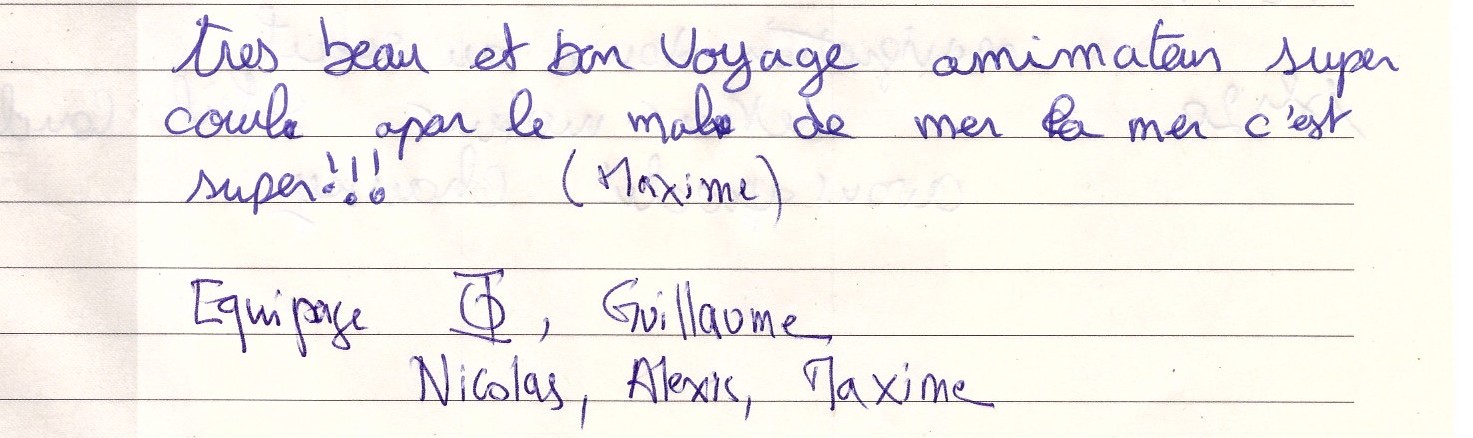 tres beau et bon Voyage animateur super
coule apar le male de mer la mer c'est
super!!! (Maxime)
Equipage , Guillaume,
Nicolas, Alexis, Maxime